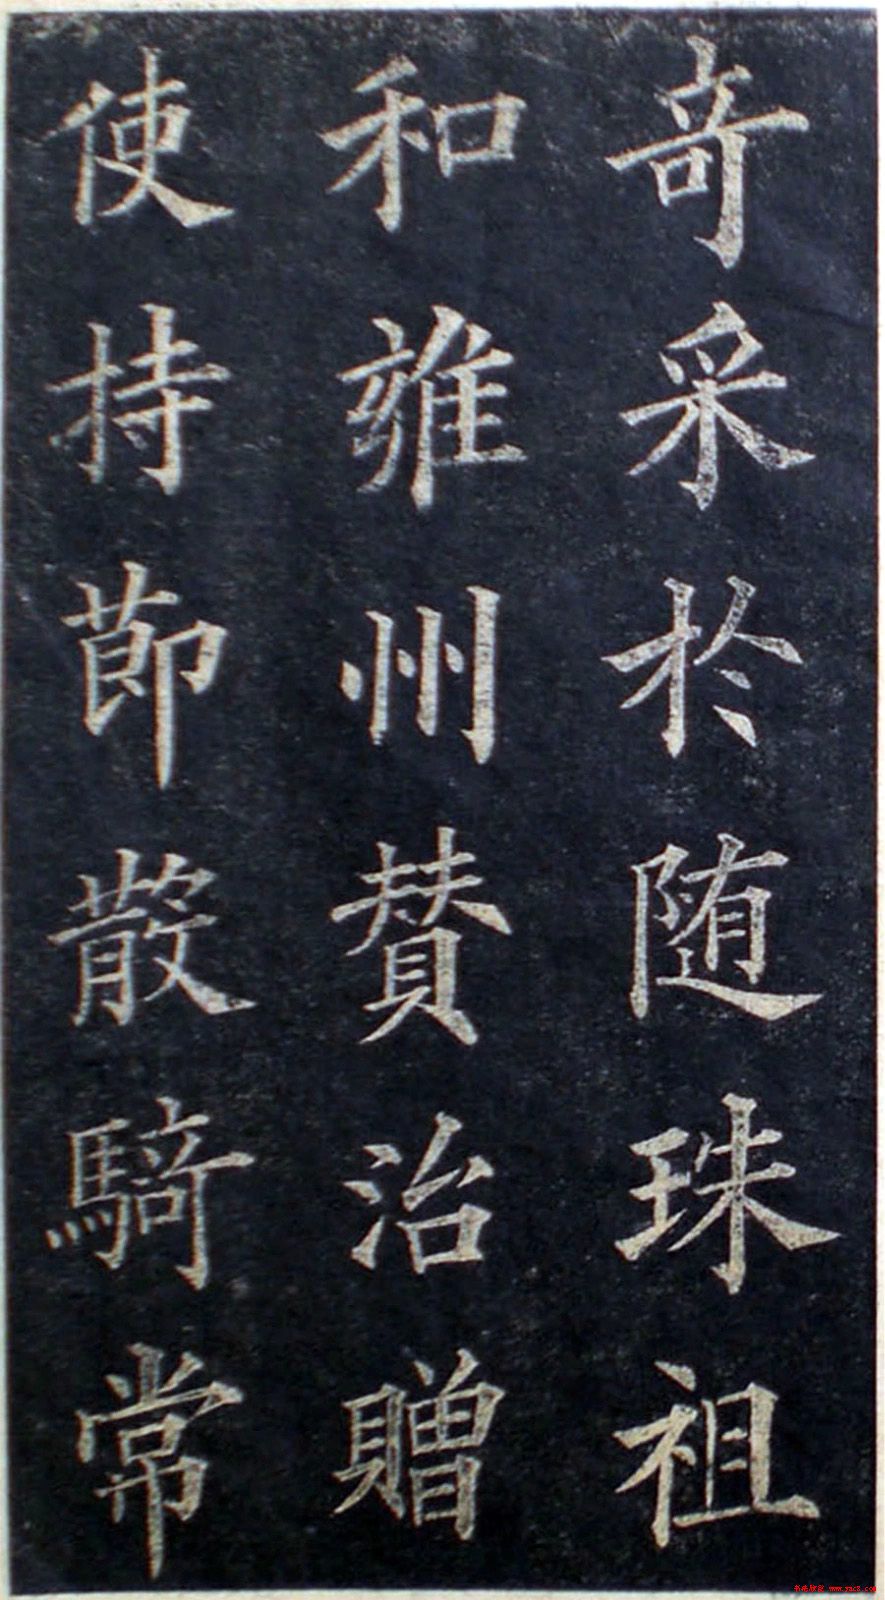 奇采於随珠祖
和雍州賛治贈
使持節散騎常
www.yac8.com